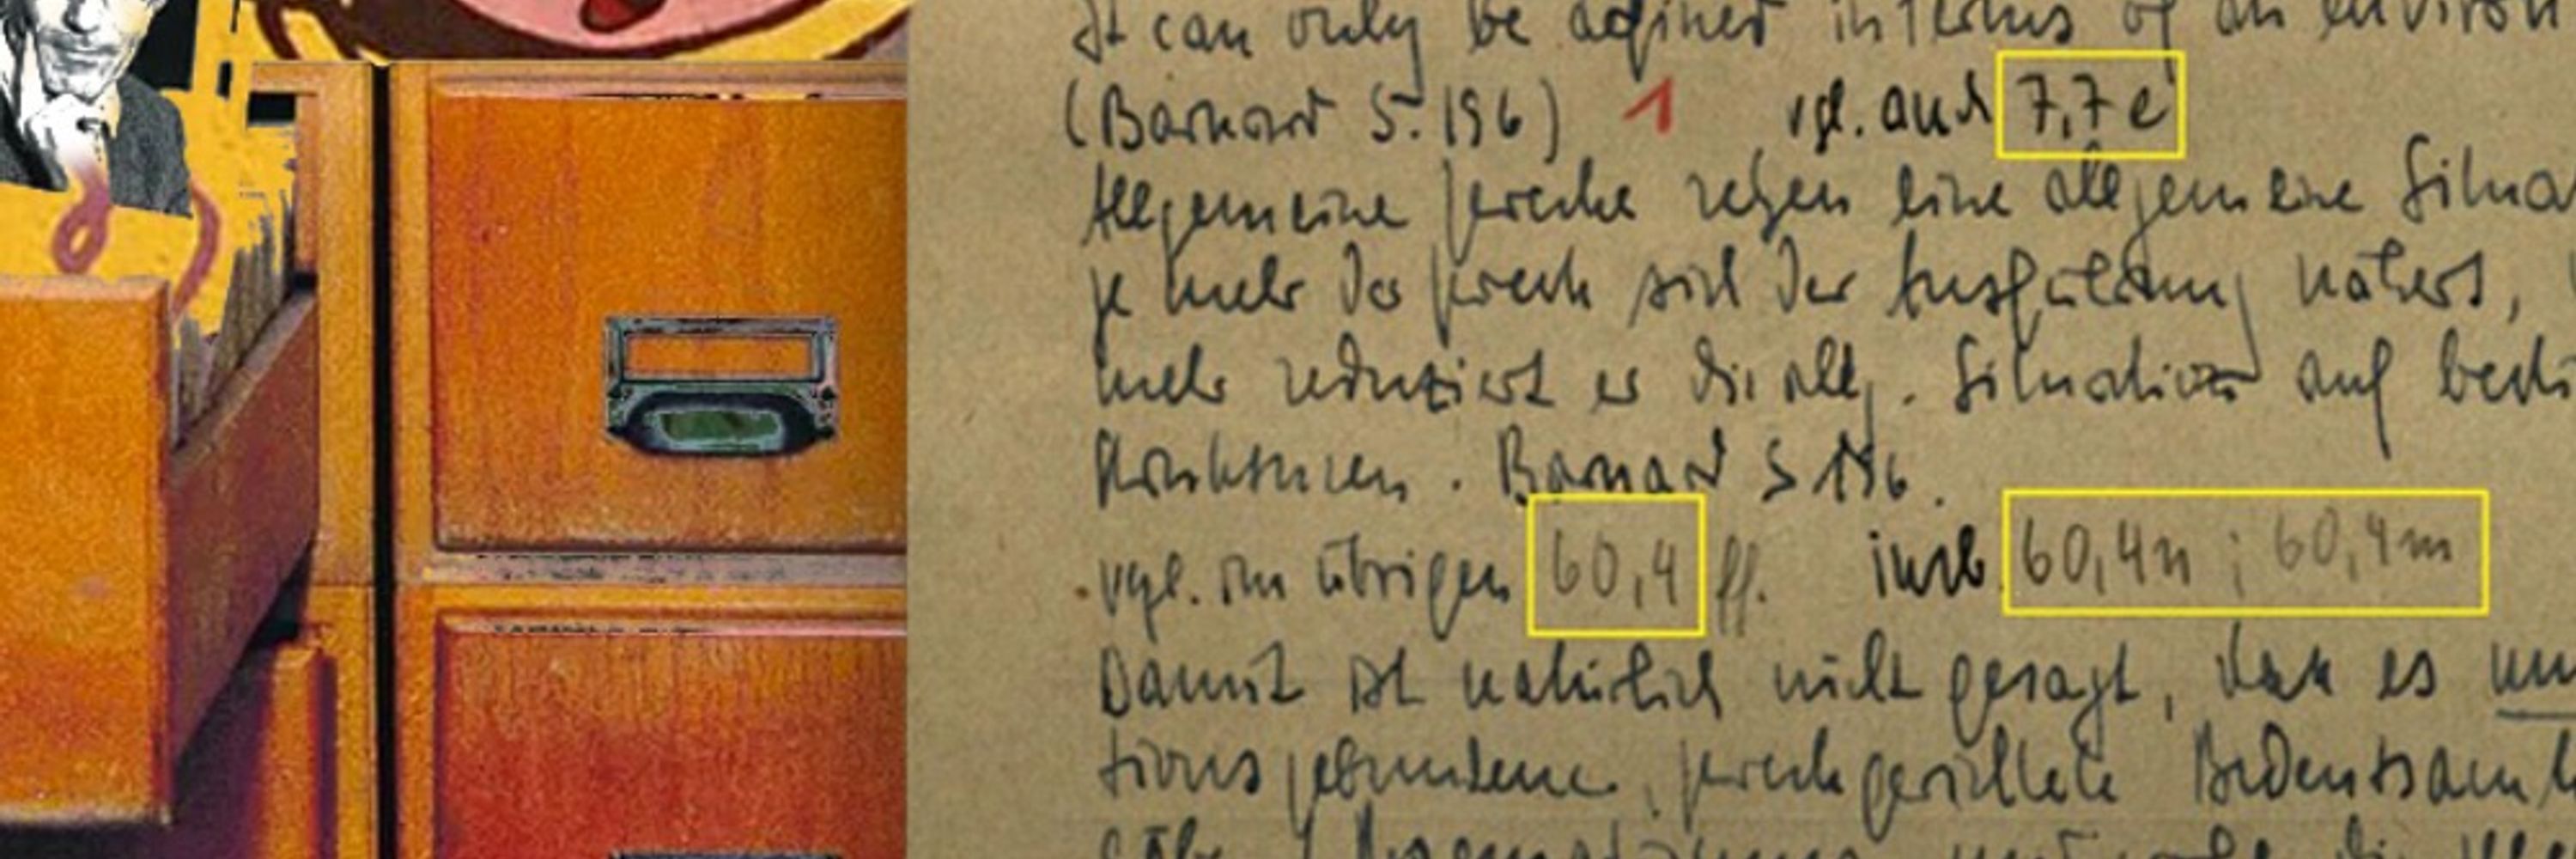 It can only be defined in terms of an environ
(Barnard S. 196) 1 vgl. auch 7,7e
Allgemeine Zwecke sehen eine allgemeine Situa
je mehr der Zweck sich der Ausführung nähert,
mehr reduziert er die allg. Situation auf besti
Strukturen. Barnard S 196.
vgl. im übrigen 60,4 ff. insb. 60,4n ; 60,4m
Damit ist natürlich nicht gesagt, dass es
tionsgebundene, zweckgerichtete Bedeutsamk
gäbe